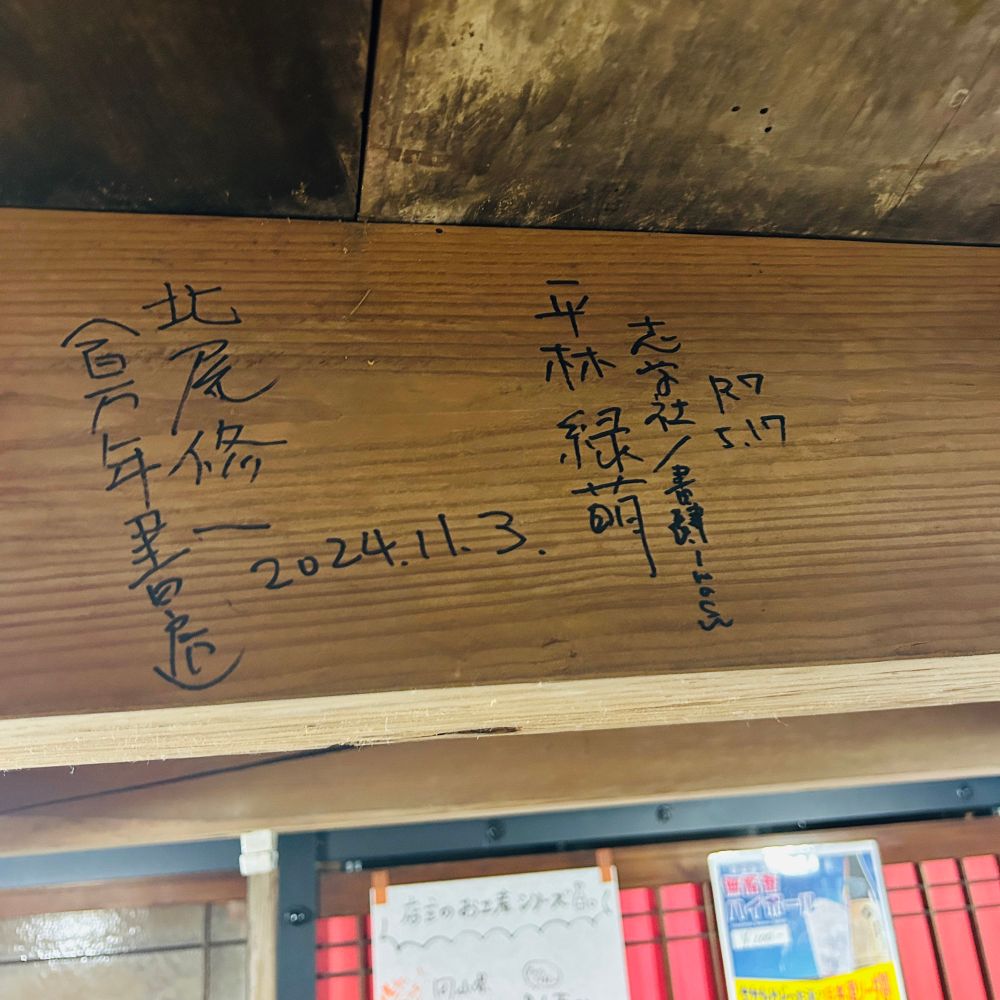 R7
5.17
志学社/書肆imasu
平林 緑萌
北尾修一
(百万年書房)
2024.11.3.
店主のお土産シリーズ
岡山県
ハイボール